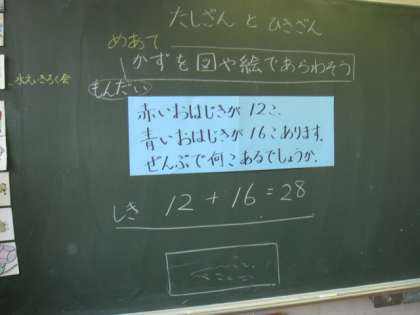 たしざん と ひきざん
めあて
かずを図や絵であらわそう
もんだい
赤いおはじきが 12こ、
青いおはじきが 16こあります。
ぜんぶで何こあるでしょうか。
しき 12 + 16 = 28